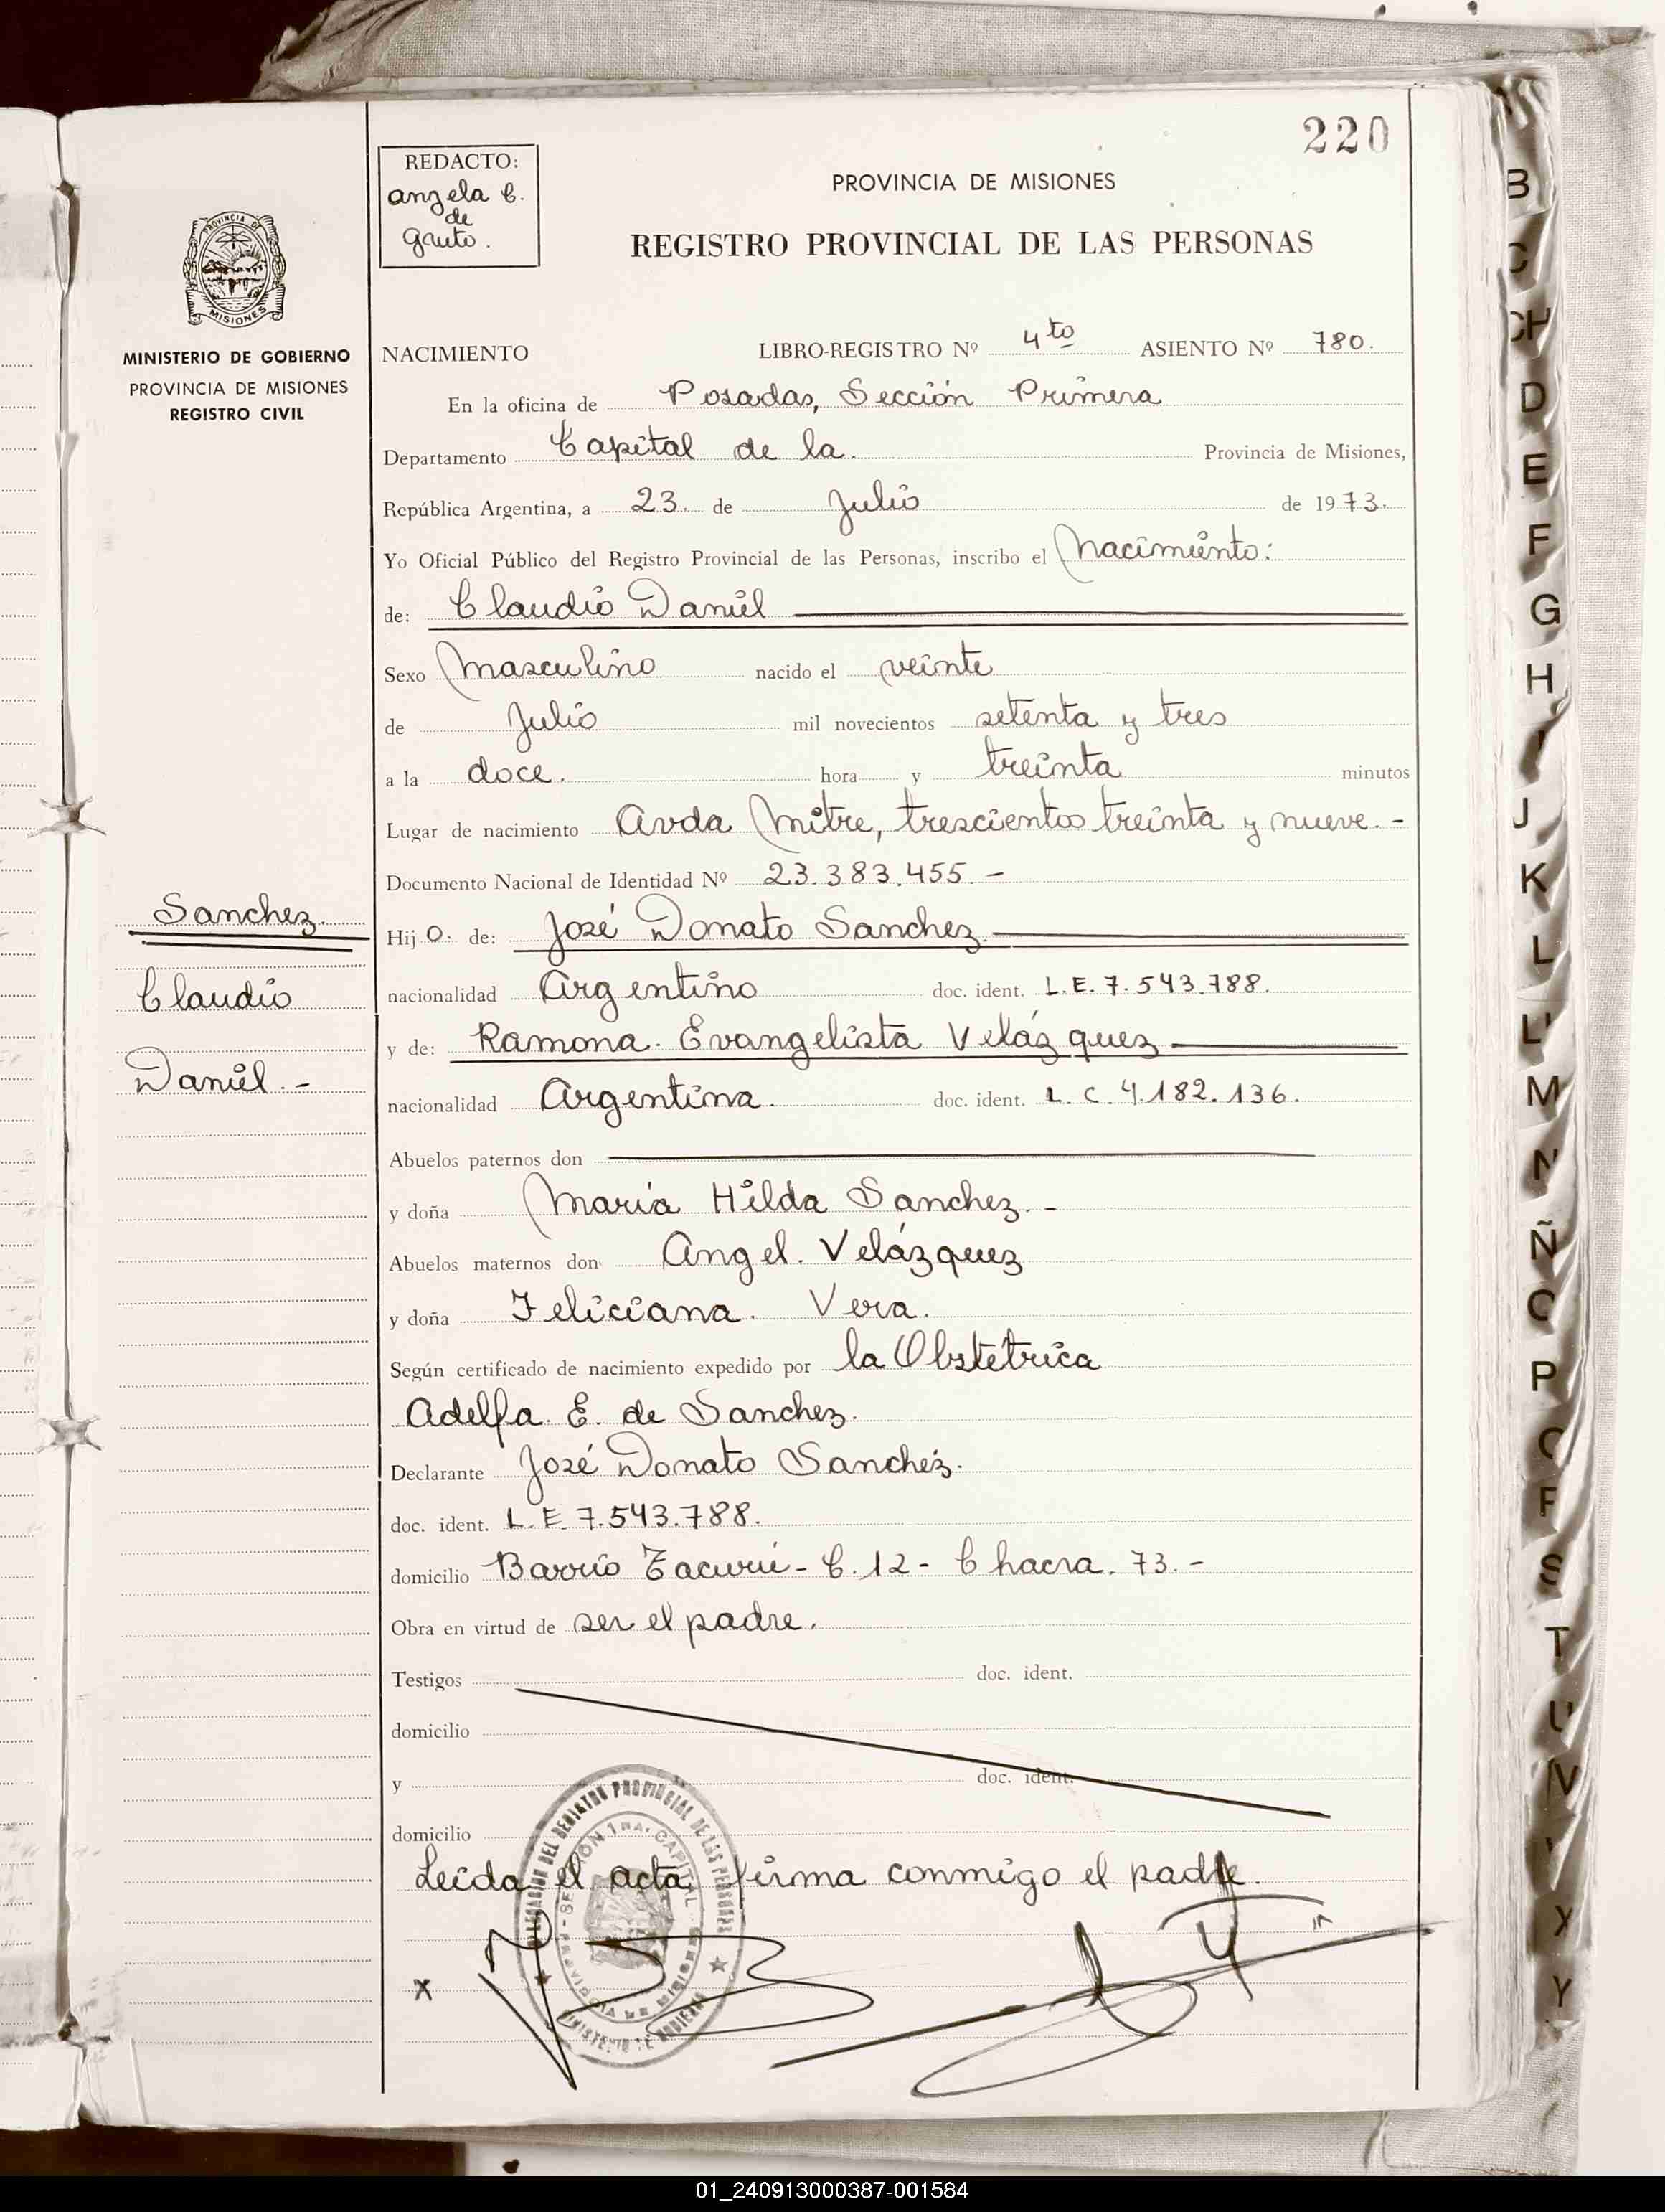 220
REDACTO:
angela C.
de
gauto.
PROVINCIA DE MISIONES
REGISTRO PROVINCIAL DE LAS PERSONAS
PROVINCIA DE
MISIONES
MINISTERIO DE GOBIERNO
PROVINCIA DE MISIONES
REGISTRO CIVIL
NACIMIENTO LIBRO-REGISTRO Nº 4to ASIENTO Nº 780.
En la oficina de Posadas, Sección Primera
Departamento Capital de la. Provincia de Misiones,
República Argentina, a 23. de Julio de 1973.
Yo Oficial Público del Registro Provincial de las Personas, inscribo el Nacimiento:
de: Claudio Daniel
Sexo Masculino nacido el veinte
de Julio mil novecientos setenta y tres
a la doce. hora y treinta minutos
Lugar de nacimiento Avda Mitre, trescientos treinta y nueve. -
Documento Nacional de Identidad Nº 23.383.455 -
Sanchez.
Claudio
Daniel. -
Hijo. de: José Donato Sanchez.
nacionalidad Argentino doc. ident. L.E. 7.543.788.
y de: Ramona. Evangelista Velázquez
nacionalidad Argentina. doc. ident. L.C. 4.182.136.
Abuelos paternos don
y doña María Hilda Sanchez. -
Abuelos maternos don Angel. Velázquez
y doña Feliciana. Vera.
Según certificado de nacimiento expedido por la Obstétrica
Adelfa. E. de Sanchez.
Declarante José Donato Sanchez.
doc. ident. L.E. 7.543.788.
domicilio Barrio Tacurú - C. 12 - Chacra. 73. -
Obra en virtud de ser el padre.
Testigos doc. ident.
domicilio
y doc. ident.
domicilio
Leída el acta firma conmigo el padre.
X
DEL REGISTRO PROVINCIAL DE LAS PERSONAS
SECCION 1RA. CAPITAL
PROVINCIA DE MISIONES
MINISTERIO DE GOBIERNO
B
C
CH
D
E
F
G
H
I
J
K
L
LL
M
N
Ñ
O
P
Q
R
S
T
U
V
X
Y
01_240913000387-001584